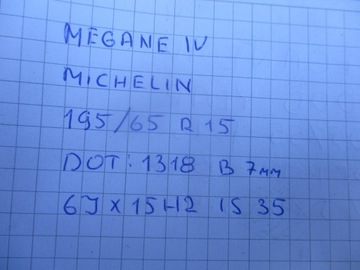 MEGANE IV
MICHELIN
195/65 R 15
DOT: 1318 B 7mm
6J X 15H2 IS 35